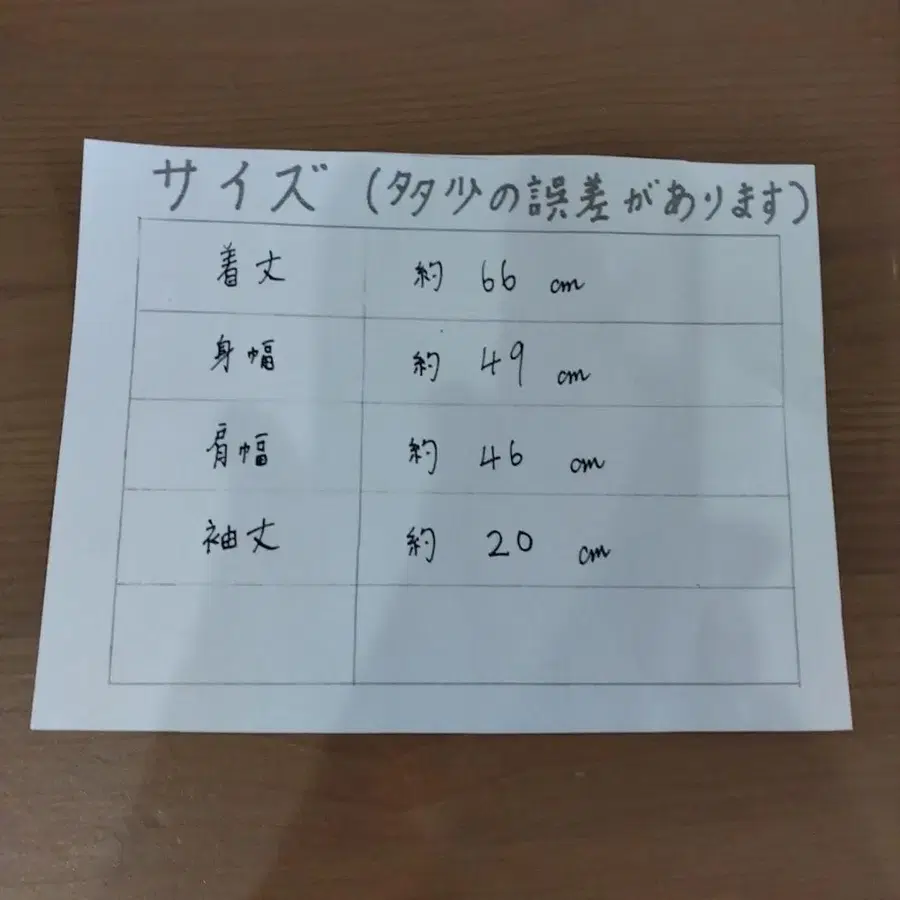 サイズ (多少の誤差があります)
着丈 約 66 cm
身幅 約 49 cm
肩幅 約 46 cm
袖丈 約 20 cm